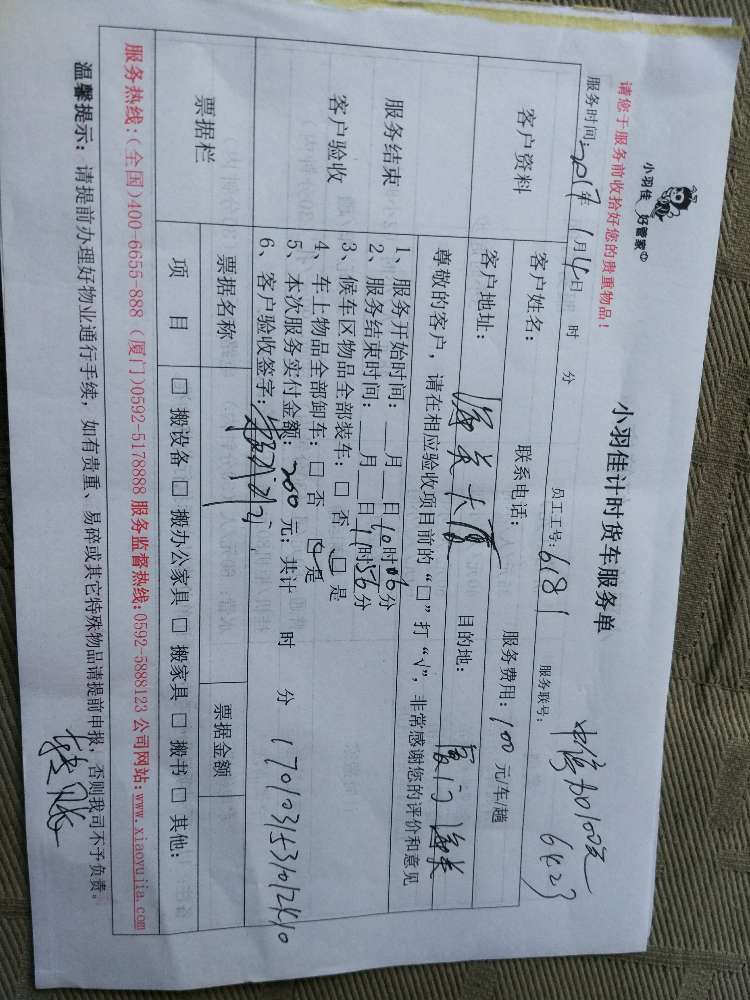 小羽佳 好管家
小羽佳计时货车服务单
请您于服务前收拾好您的贵重物品！
中修加100元
服务时间：2017年1月4日 时 分 员工工号：6181 服务联号：6423
客户资料
客户姓名： 联系电话： 服务费用：100元/车/趟
客户地址：海关大厦 目的地：厦门海关
服务结束
客户验收
尊敬的客户，请在相应验收项目前的“□”打“√”，非常感谢您的评价和意见
1、服务开始时间：__月__日10时06分
2、服务结束时间：__月__日11时56分
3、候车区物品全部装车：□ 否 □ 是
4、车上物品全部卸车：□ 否 □ 是
5、本次服务实付金额：200元；共计 时 分
6、客户验收签字：
票据栏
票据名称 票据金额
项 目 □ 搬设备 □ 搬办公家具 □ 搬家具 □ 搬书 □ 其他：
服务热线：(全国)400-6655-888 (厦门)0592-5178888 服务监督热线：0592-5888123 公司网站：www.xiaoyujia.com
温馨提示：请提前办理好物业通行手续，如有贵重、易碎或其它特殊物品请提前申报，否则我司不予负责。
转账